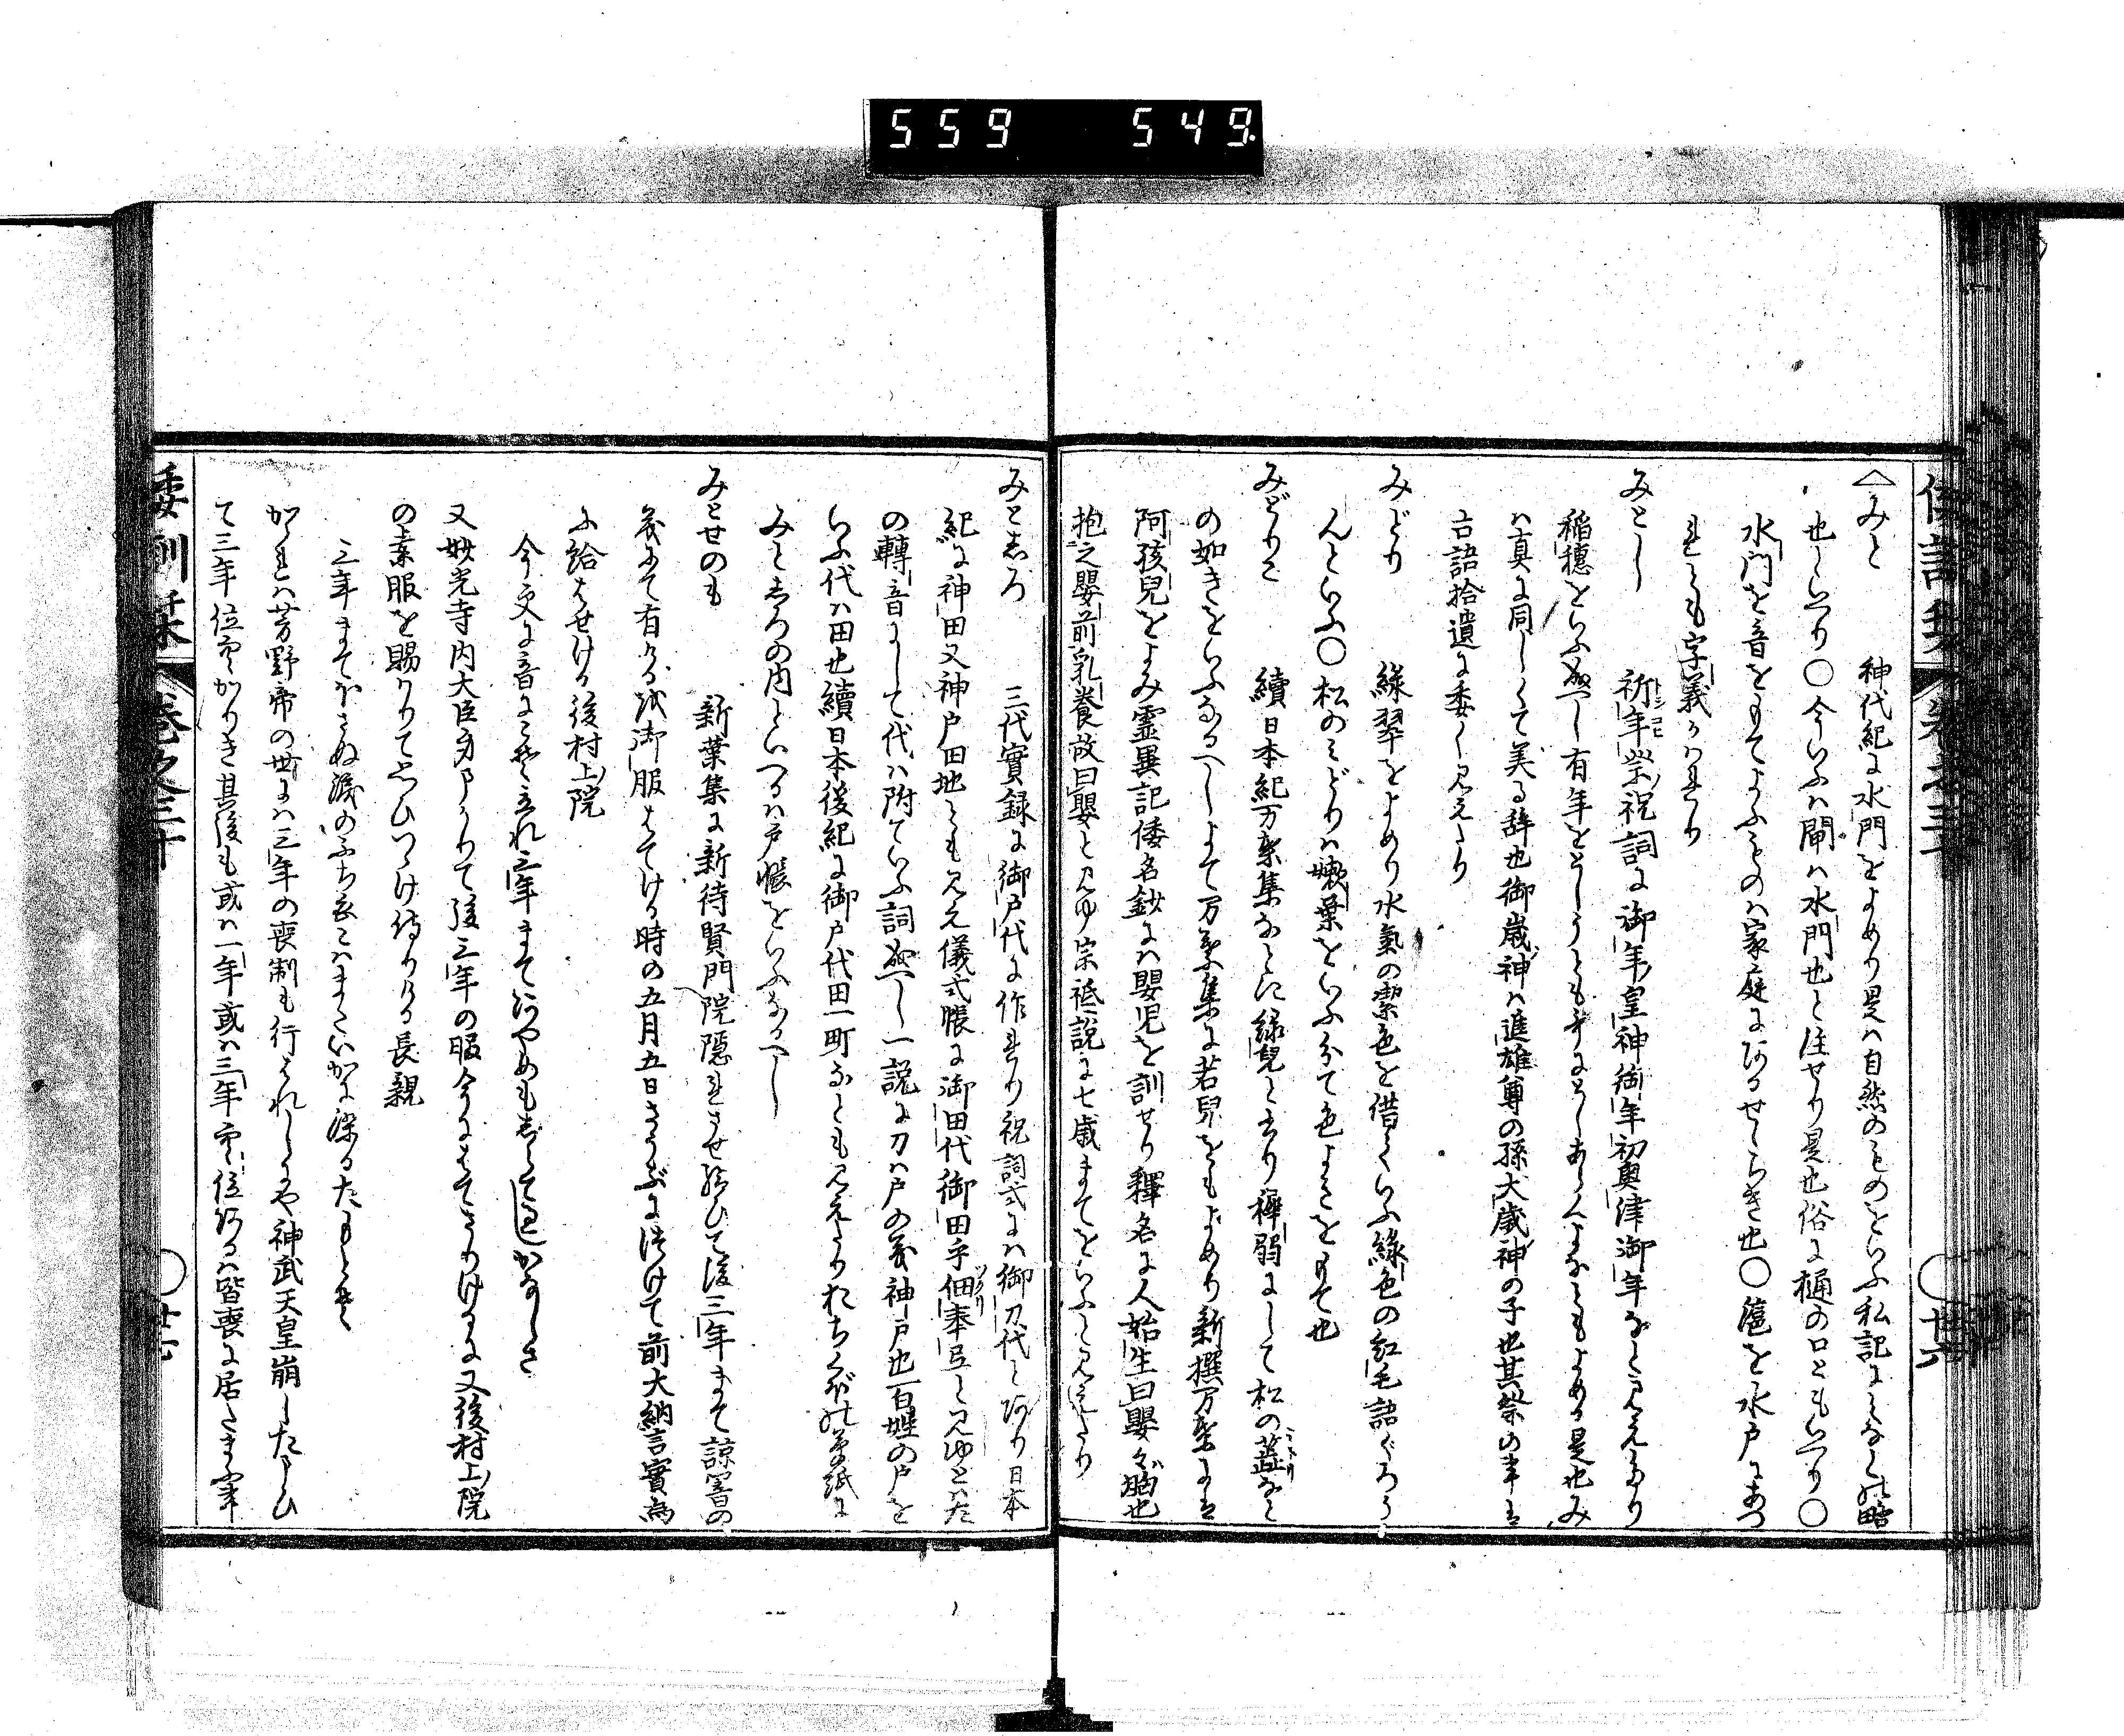 559 549
みと 神代紀に水門をよめり是ハ自然のものをいふ私記にみなとの略
也といへり〇今いふハ閘ハ水門也と注せり是也俗に樋の口ともいへり〇
水門を音をもてよふものハ家庭にあるせゝらき也〇滬を水戸にあつ
れとも字義かハれり
みとし 祈年祭祝詞に御年皇神御年初奥津御年なと見えたり
稲穂をいふ成へし有年をとしうとも
ハ真に同しくて美る辞也御歳神ハ進雄尊の孫大歳神の子也其祭の事は
古語拾遺に委く見えたり
みどり 綠翠をよめり水氣の潔色を借ていふ綠色の紅毛語ぐろう
んといふ〇松のみどりハ嫩葉をいふ分て色よきをもて也
みどりこ 續日本紀万葉集なとに緑兒と云り稚弱にして松の蕋なと
の如きをいふなるへしよて万葉集に若兒をもよめり新撰万葉には
阿孩兒をよみ霊異記倭名鈔にハ嬰児を訓せり釋名に人始生曰嬰々胸也
抱之嬰前乳養故曰嬰と見ゆ宗祗説に七歳まてをいふと見えたり
みとしろ 三代實録に御戸代に作れり祝詞式にハ御刀代とあり日本
紀に神田又神戸田地とも見え儀式帳に御田代御田手佃奉豆と見ゆとハた
の轉音にして代ハ附ていふ詞成へし一説に刀ハ戸の義神戸也百姓の戸を
いふ代ハ田也續日本後紀に御戸代田一町なとも見えたりおちくぼ草紙に
みとしろの内といへるハ戸帳をいふなるへし
みとせのも 新葉集に新待賢門院隠れさせ給ひて後三年まて諒闇の
義にて有ける服御服はてける時の五月五日さうぶに付けて前大納言實為
に給はせける後村上院
今更に音にこそ立れ三年まてあやめもしらて過しかなしさ
又妙光寺内大臣身まかりて後三年の服今にはてさりけるに又後村上院
の素服を賜りて思ひつゝけ侍りける長親
三年まてほさぬ涙のふち衣こハまたいかに染るたもとそ
かゝれハ芳野帝の世にハ三年の喪制も行はれしにや神武天皇崩したまひ
て三年位空しかりき其後も或ハ一年或ハ三年空位あるハ皆喪に居たまふ事
倭訓栞 卷之三十 〇廿七